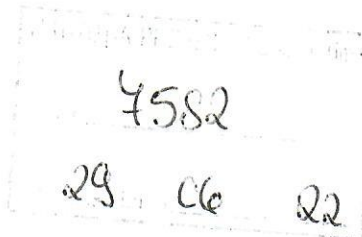 7582
29 06 22